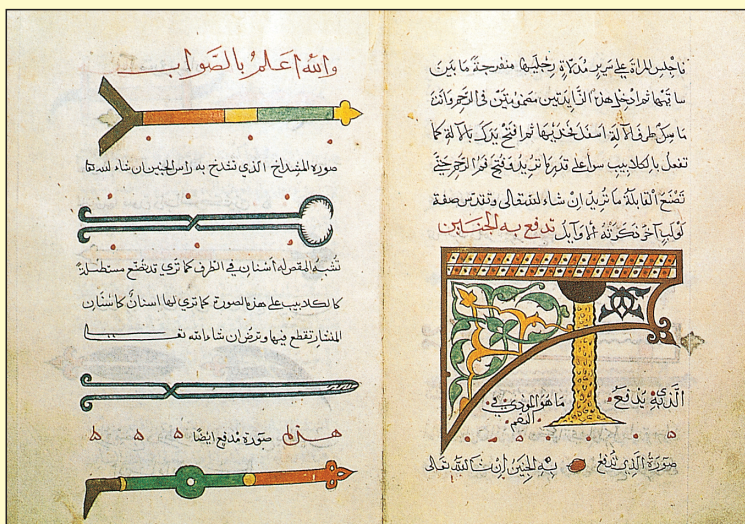 فاجلس المراة على سرير مدلاة رجليها منفرجة ما بين
ساقيها ثم ادخل هذا الزايدتين مضمومتين في الرحم وانت
ماسك طرف الالة اسفل فخذيها ثم افتح يدك بالالة كما
تفعل بالكلاليب سوا على قدر ما تريد فتح فم الرحم حتى
تصنع القابلة ما تريد ان شاء الله تعالى وتقدس صفة
لولب آخر ذكرته الاوايل تدفع به الجنين
الذي يدفع ما هو المودي في الفم
صورة الذي تدفع به الجنين ان شا الله تعالى
والله اعلم بالصواب
صورة المشداخ الذي تشدخ به راس الجنين ان شاء الله تعا
تشبه المقص له اسنان في الطرف كما تري قد تصنع مستطيلة
كالكلاليب على هذه الصورة كما تري لها اسنان كاسنان
المنشار تقطع فيها وترض ان شاء الله تعا
هذه صورة مدفع ايضا ه ه ه